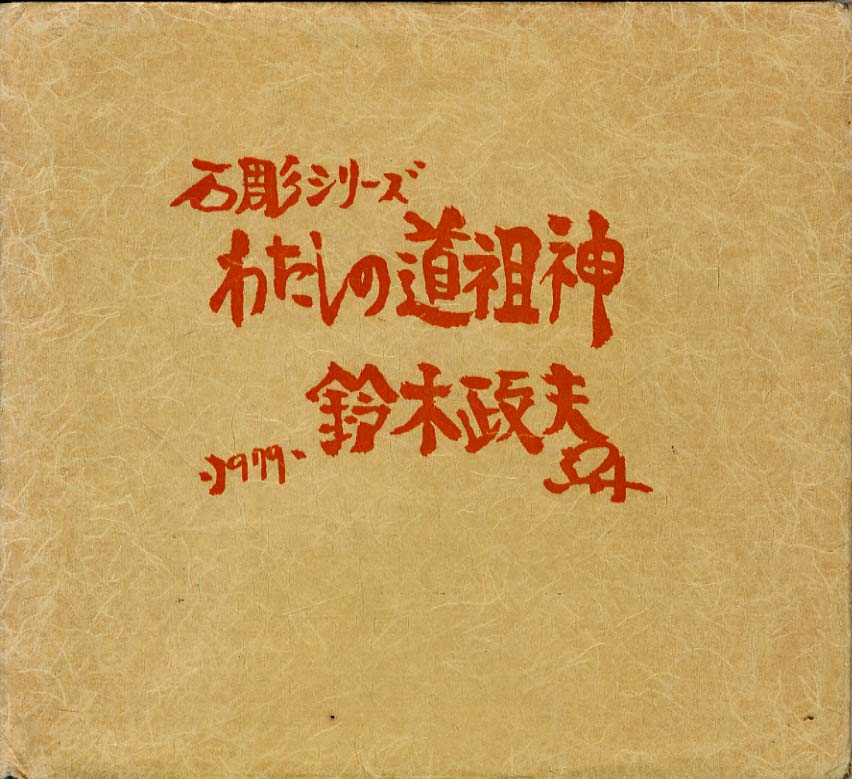 石彫シリーズ
わたしの道祖神
鈴木政夫
1979.